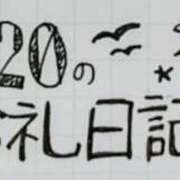 20の
礼日記